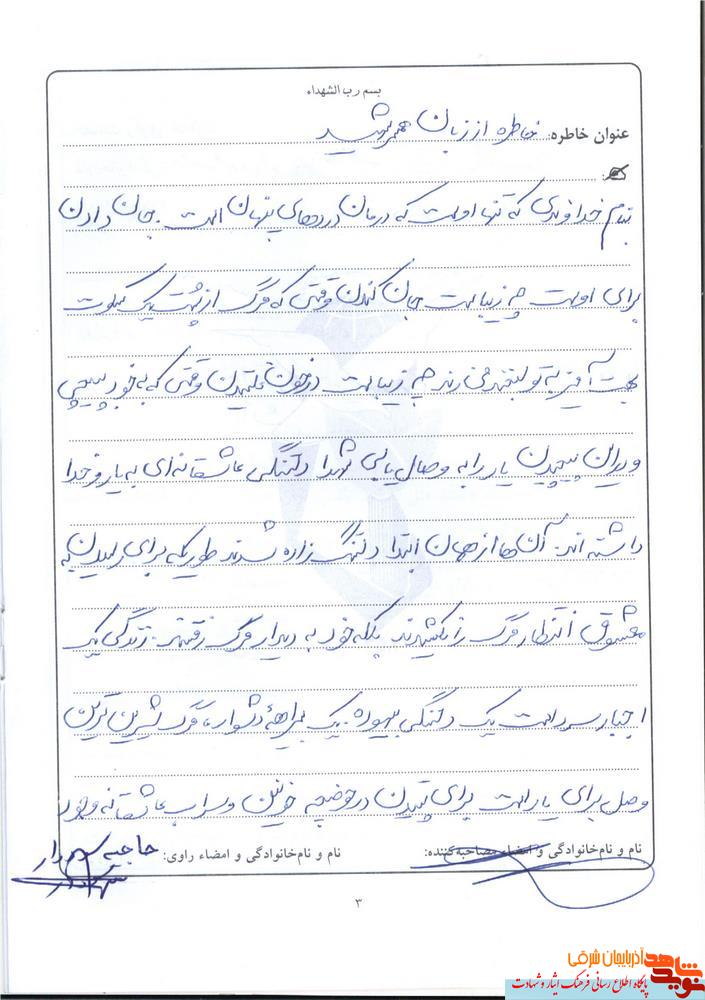 بسم رب الشهداء
عنوان خاطره: خاطره از زبان همسر شهید
بنام خداوندی که تنها اوست که درمان دردهای پنهان است. جان دادن
برای اوست چه زیباست جان کندن وقتی که مرگ از پُشت یک سکوت
بهت آمیز به تو لبخند می زند چه زیباست در خون غلتیدن وقتی که به خود پیچی
و در این پیچیدن یار را به وصال یابی شهدا دلتنگی عاشقانه‌ای به یار و خدا
داشته اند. آن‌ها از همان ابتدا دلتنگ زاده شدند طوریکه برای رسیدن به
معشوق انتظار مرگ را نکشیدند بلکه خود به دیدار مرگ رفتند. زندگی یک
اجبار سرد است یک دلتنگی بیهوده. یک بیراههٔ دشوار، مرگ شیرین ترین
وصل برای یار است برای تپیدن در حوضچه خونین و سراب عاشقانه وجود
نام و نام‌خانوادگی و امضاء مصاحبه‌کننده:
نام و نام‌خانوادگی و امضاء راوی: حاجیه
۳
نوید شاهد آذربایجان شرقی
پایگاه اطلاع رسانی فرهنگ ایثار و شهادت